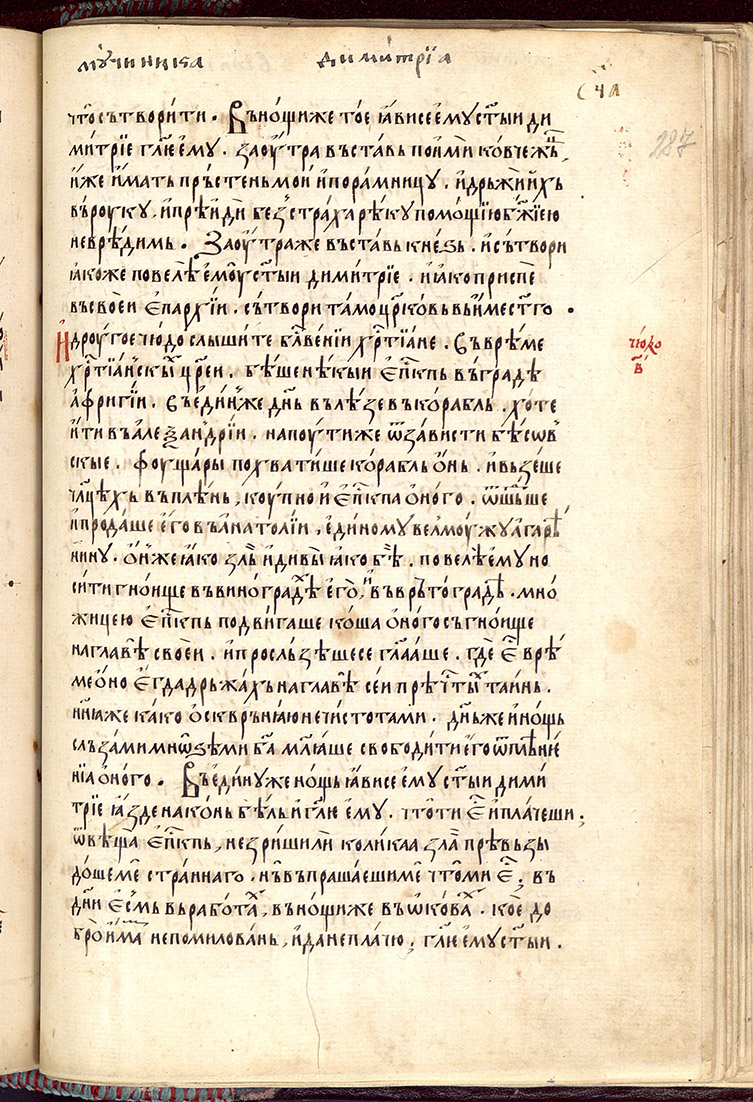 мꙋчиника димитрїа
сч҃л
287
что̀ сътвори́ти . Въ но́щи же то́е ꙗ҆ви се є҆мꙋ ст҃ыи ди
ми́трїе гл҃ю є҆мꙋ . заоу́тра въста́вь пои́ми ковчеж꙽ць
и҆́же и҆́мать прьстень мо́и и҆ пора́мницꙋ . и҆ дрьжѝ и҆́хь
въ роу́кꙋ , и҆ прѣиди̏ без̾ стра́ха рѣ́кꙋ по́мощїю бж҃їею
невре́димь . Заоу́тра же въста́вь кне́зь . и҆ сътвори
ꙗ҆́коже повелѣ̀ є҆мꙋ̀ ст҃ыи димитрїе . и҆ ꙗ҆́ко приспѣ
въ свое́и є҆па́рхїи . сътвори та́мо цр҃ковь въ и҆́ме ст҃го .
И҆ дроуго́е чю́до слы́шите бл҃гве́нїи хрⷭ҇тїа́не . Съ врѣ́ме
хрⷭ҇тїа́нскыⷯ цр҃еи . бѣ́ше нѣ́кыи є҆пⷭ҇кпь въ гра́дѣ
а҆фри́гїи . Съ є҆ди́нь же дн҃ь вълѣ́зе въ кора́бль . хо́те
и҆́ти въ але́ѯандрїи . на поу́ти же ѿ за́висти бѣсѡⷡ
скые . фоу́щары похвати́ше кора́бль ѻ҆́нь . и҆ възе́ше
чл҃цѣхь въ плѣ́нь , коу́пно и҆ є҆пⷭ҇кпа ѻ҆́ного . ѿше́дьше
и҆ прода́ше є҆го̀ въ а҆нато́лїи , є҆ди́номꙋ велмоу́жꙋ а҆гарѣ́
нинꙋ . ѻ҆́нь же ꙗ҆́ко ѕль̀ и҆ ди́вы̀ и҆ ꙗ҆́ко бѣ̀ . повелѣ̀ є҆мꙋ но
си́ти гно́ище въ виногра́дѣⷯ є҆го̀ , и҆ въ врь́тогра́дѣⷯ . мно́
жицею є҆пⷭ҇кпь подви́гаше ко́ша ѻ҆́ного съ гно́ище
на гла́вѣ свое́и . и҆ просльзѣ́ше се гл҃аа́ше . гдѐ є҆ⷭ҇ врѣ́
ме ѻ҆́но є҆гда̀ дрьжа́хъ на гла́вѣ се́и прѣчⷭ҇тыⷯ та́инь .
нн҃ꙗ же ка́ко ѻ҆сквръни́ю нечистота́ми . дн҃ь же и҆ но́щь
сль́зами мнѡ́ѕѣми ба҃ мл҃ꙗ́ше свободи́ти є҆го̀ ѿ плѣ́не
нїа ѻ҆́ного . Въ є҆ди́нꙋ же но́щь ꙗ҆ви се є҆мꙋ ст҃ыи дими́
трїе ꙗ҆́зде на ко́нь бѣ́ль и҆ гл҃ю є҆мꙋ . что̀ ти є҆ⷭ҇ и҆ пла́чеши ;
ѿвѣща̀ є҆пⷭ҇кпь , не зри́ши ли коли́каа ѕла̀ прѣвьзы
до́ше ме̏ стра́ннаго . нь̀ въпра́шаеши ме̏ что̀ ми є҆ⷭ҇ ; въ
дн҃и є҆́смь въ рабо́таⷯ , въ но́щи же въ ѡ҆ко́ваⷯ . ко́е до
бро̀ и҆́маⷨ непоми́ловань , и҆ да не пла́чю ; гл҃ю є҆мꙋ ст҃ыи .
чю́до
в҃